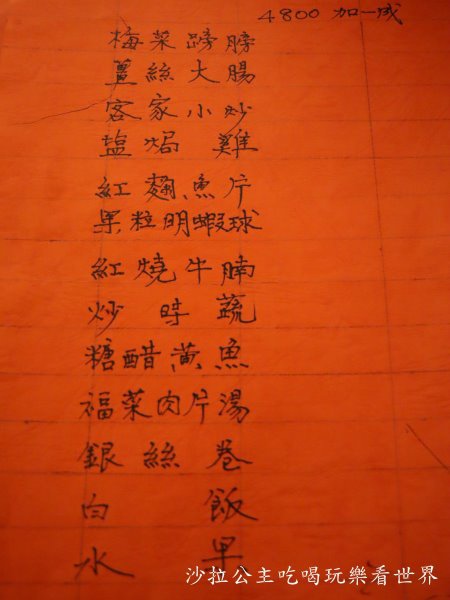 4800 加一成
梅菜蹄膀
薑絲大腸
客家小炒
塩焗雞
紅麴魚片
果粒明蝦球
紅燒牛腩
炒時蔬
糖醋黃魚
福菜肉片湯
銀絲卷
白飯
水果
沙拉公主吃喝玩樂看世界